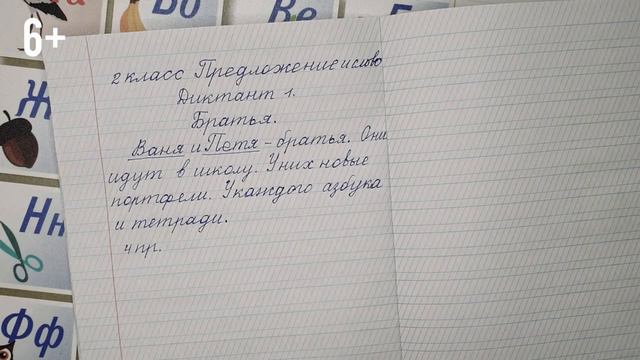 6+
Во
Ве
2 класс Предложение и слово
Диктант 1.
Братья.
Ваня и Петя - братья. Они
идут в школу. У них новые
портфели. У каждого азбука
и тетради.
4 пр.
Ж
Нн
Фф